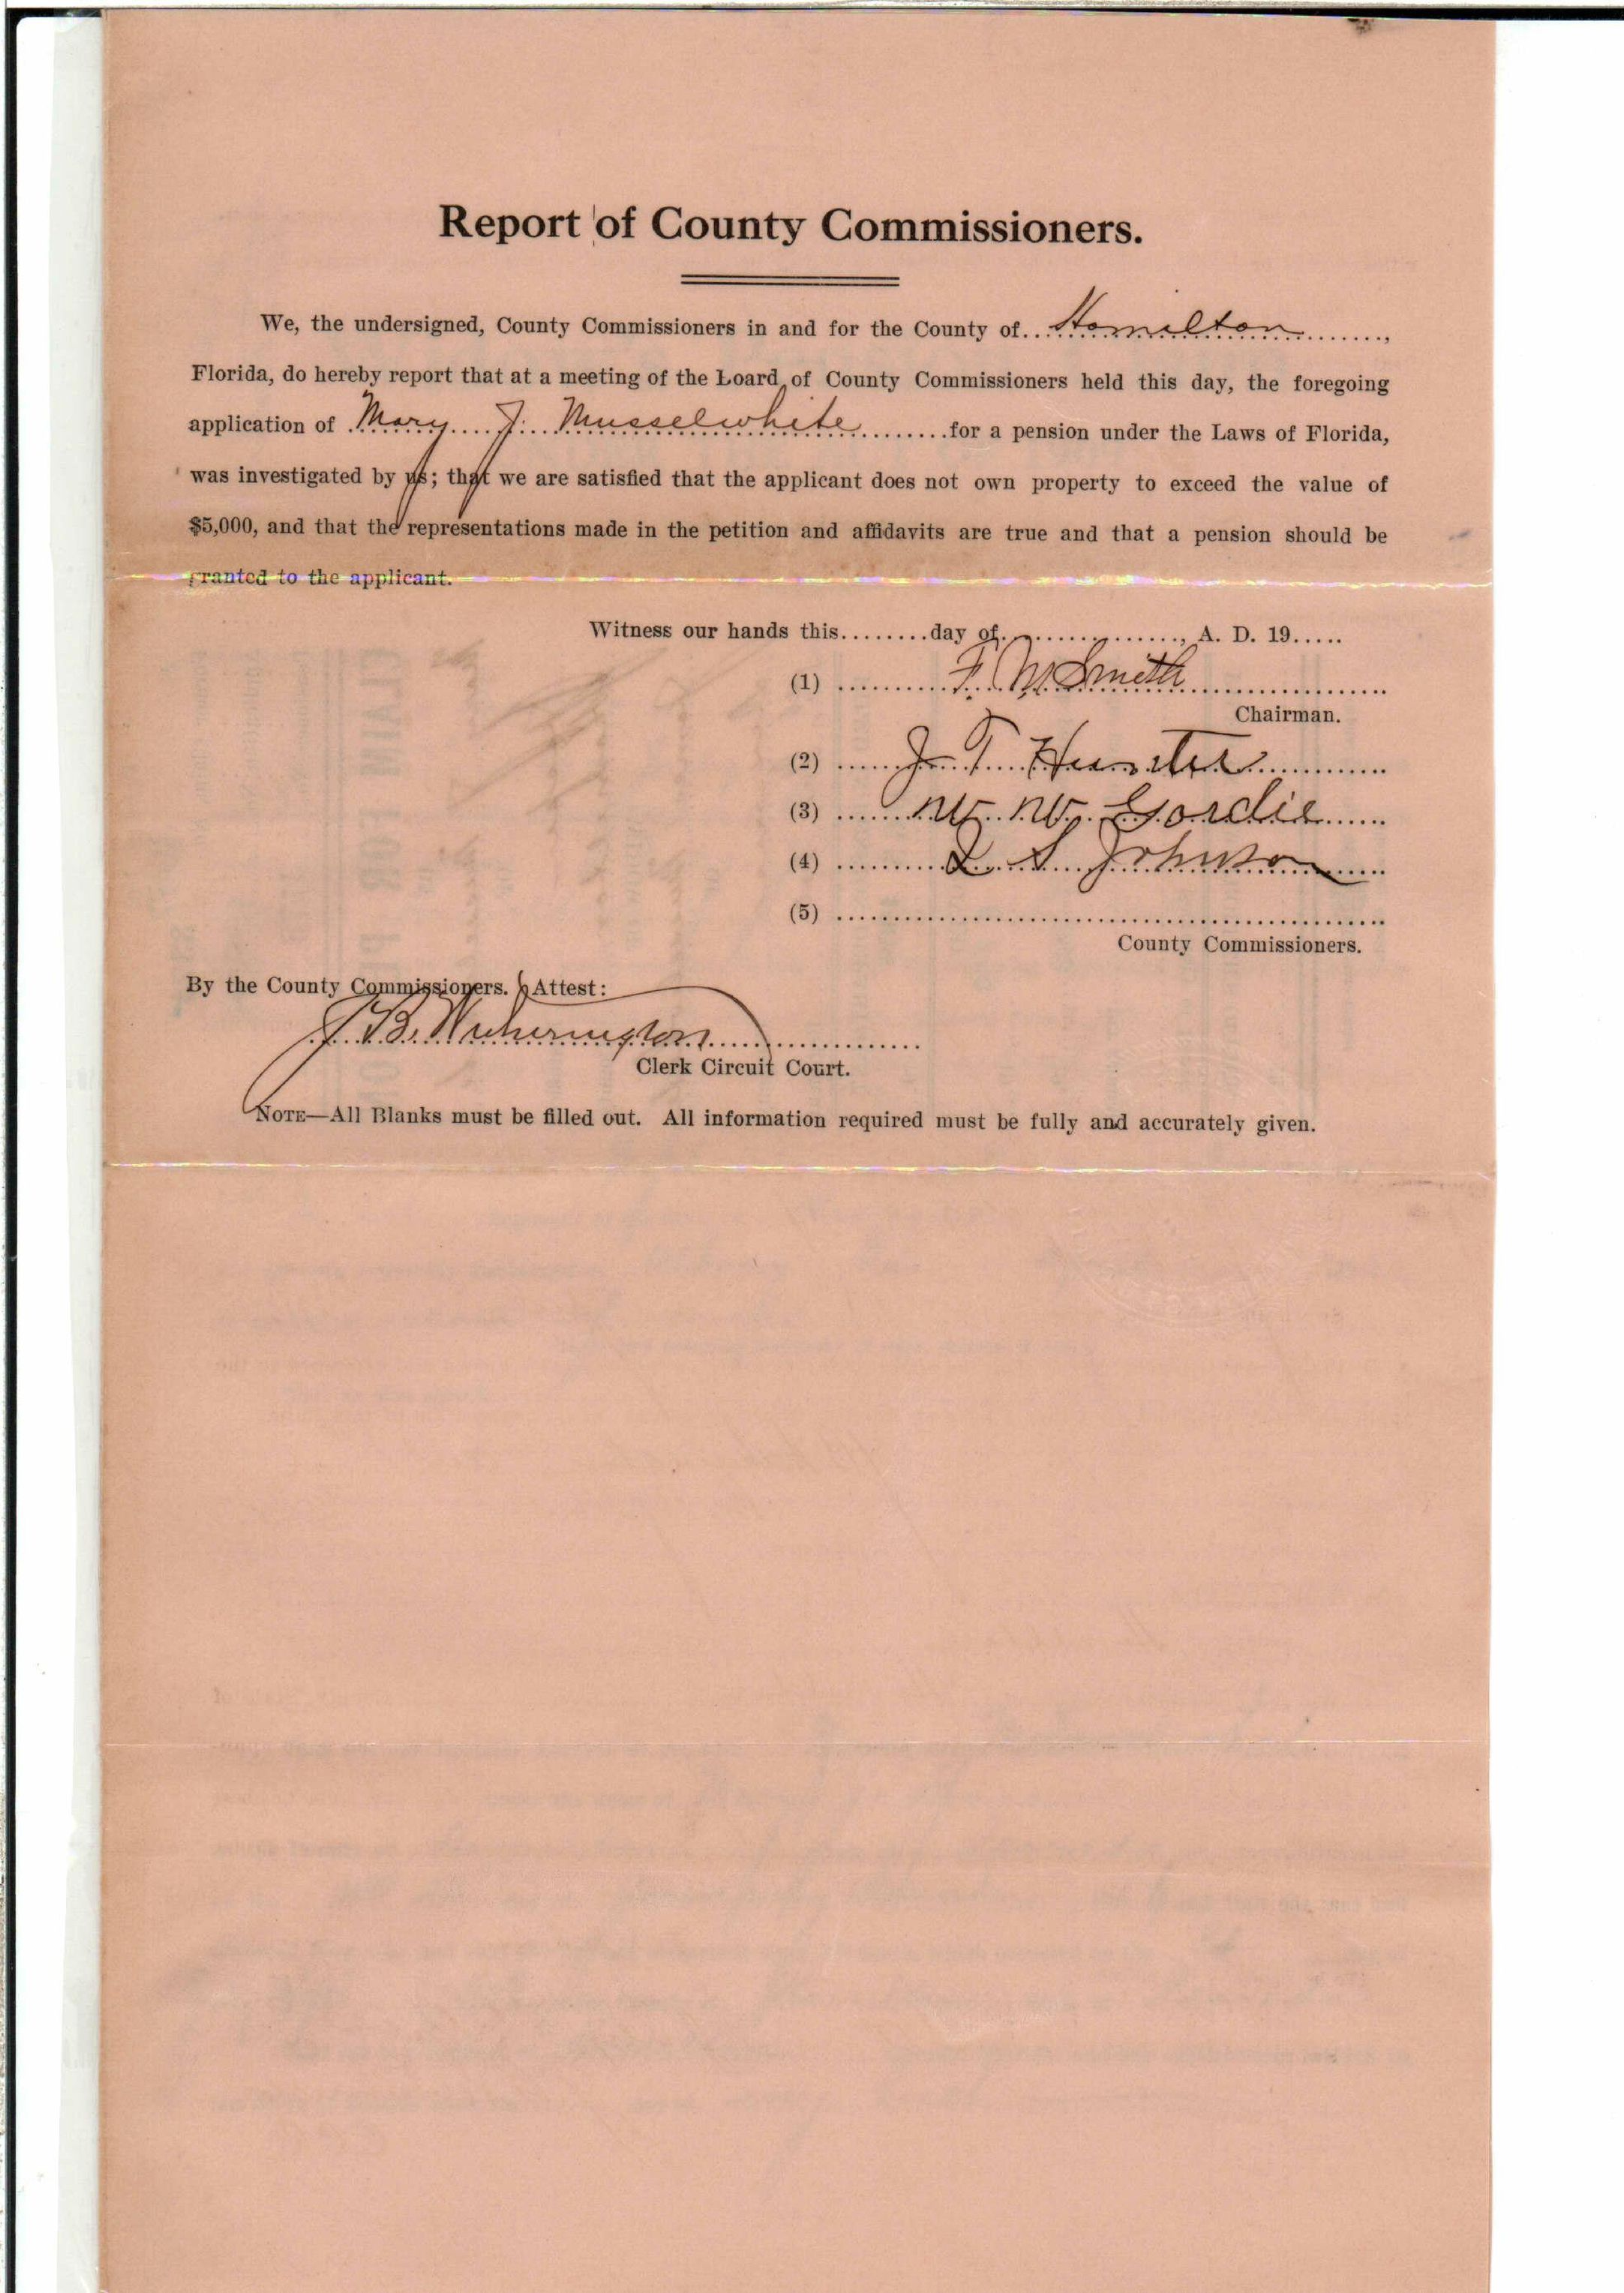 Report of County Commissioners.
We, the undersigned, County Commissioners in and for the County of Hamilton,
Florida, do hereby report that at a meeting of the Loard of County Commissioners held this day, the foregoing
application of Mary J. Musselwhite for a pension under the Laws of Florida,
was investigated by us; that we are satisfied that the applicant does not own property to exceed the value of
$5,000, and that the representations made in the petition and affidavits are true and that a pension should be
granted to the applicant.
Witness our hands this........day of..................., A. D. 19.....
(1) F. M Smith
Chairman.
(2) J. T. Hunter
(3) W. W. Gordie
(4) L. S. Johnson
(5) ..................................................
County Commissioners.
By the County Commissioners. Attest:
J. B. Witherington
Clerk Circuit Court.
NOTE—All Blanks must be filled out. All information required must be fully and accurately given.